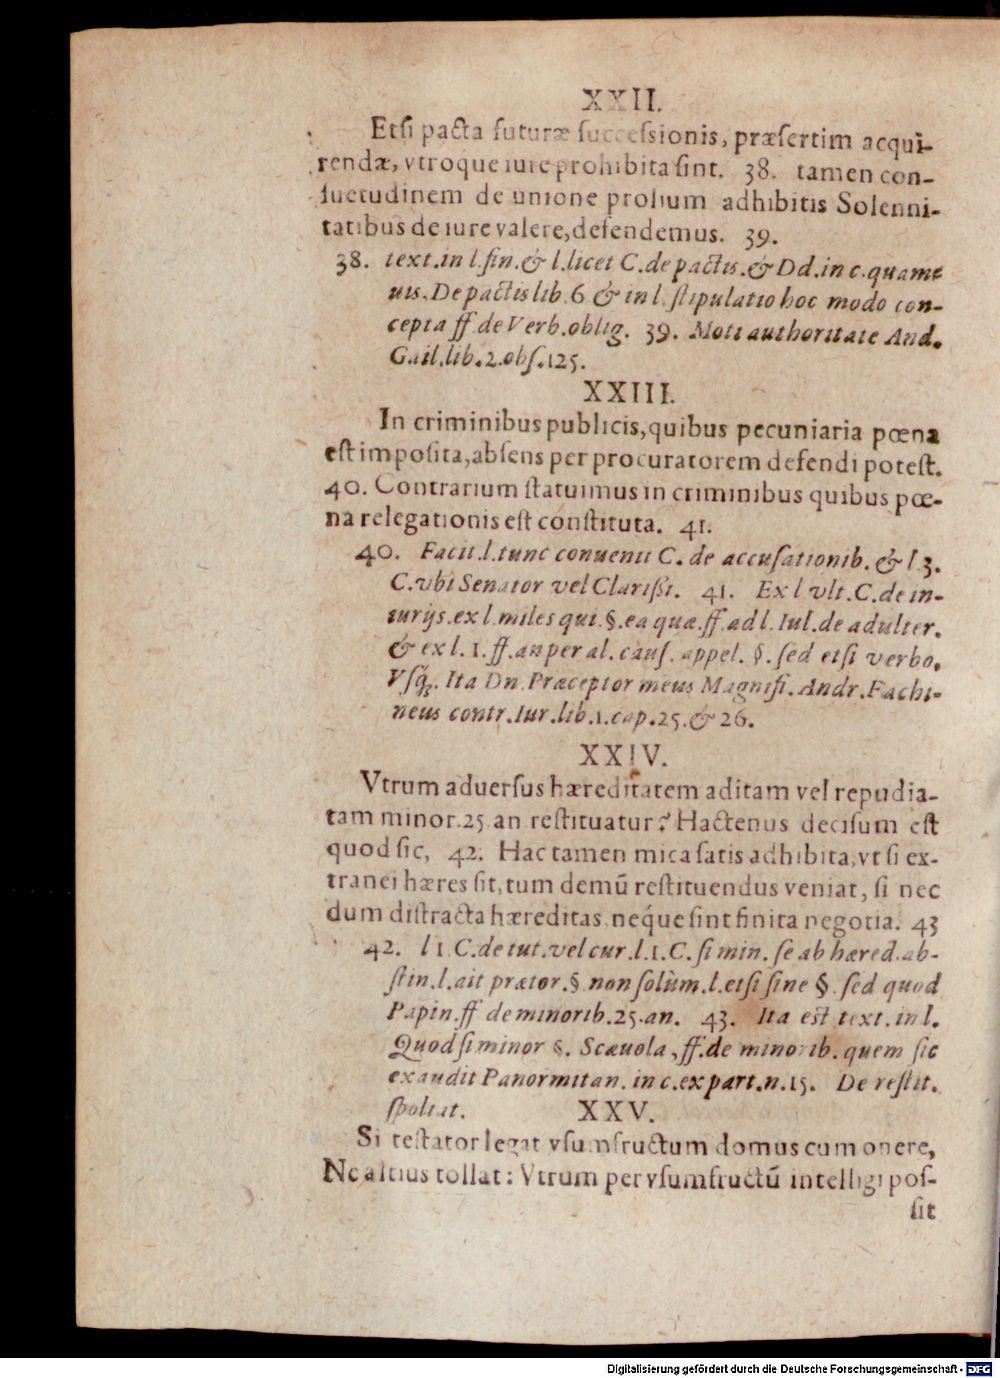 XXII.
Etſi pacta futuræ ſucceſsionis, præſertim acqui-
rendæ, vtroque iure prohibita ſint. 38. tamen con-
ſuetudinem de unione prolium adhibitis Solenni-
tatibus de iure valere, defendemus. 39.
38. text. in l. fin. & l. licet C. de pactis. & Dd. in c. quamt
uis. De pactis lib. 6 & in l. ſtipulatio hoc modo con-
cepta ff. de Verb. oblig. 39. Moti authoritate And.
Gail. lib. 2. obſ. 125.
XXIII.
In criminibus publicis, quibus pecuniaria pœna
eſt impoſita, abſens per procuratorem defendi poteſt.
40. Contrarium ſtatuimus in criminibus quibus pœ-
na relegationis eſt conſtituta. 41.
40. Facit. l. tunc conuenit C. de accuſationib. & l 3.
C. vbi Senator vel Clariſsi. 41. Ex l vlt. C. de in-
iurijs. ex l. miles qui. §. ea quæ. ff. ad l. Iul. de adulter.
& ex l. 1. ff. an per al. cauſ. appel. §. ſed etſi verbo,
Vſq́;. Ita Dn. Præceptor meus Magnifi. Andr. Fachi-
neus contr. Iur. lib. 1. cap. 25. & 26.
XXIV.
Vtrum aduerſus hæreditatem aditam vel repudia-
tam minor. 25 an reſtituatur? Hactenus deciſum eſt
quod ſic, 42. Hac tamen mica ſatis adhibita, vt ſi ex-
tranei hæres ſit, tum demũ reſtituendus veniat, ſi nec
dum diſtracta hæreditas neq́ue ſint finita negotia. 43
42. l 1 C. de tut. vel cur. l. 1. C. ſi min. ſe ab hæred. ab-
ſtin. l. ait prætor. § non ſolùm. l. etſi ſine §. ſed quod
Papin. ff de minorib. 25. an. 43. Ita eſt text. in l.
Quod ſi minor §. Scæuola, ff. de minorib. quem ſic
exaudit Panormitan. in c. ex part. n. 15. De reſtit.
ſpoliat.
XXV.
Si teſtator legat vſumfructum domus cum onere,
Ne altius tollat: Vtrum per vſumfructũ intelligi poſ-
ſit
Digitalisierung gefördert durch die Deutsche Forschungsgemeinschaft - DFG